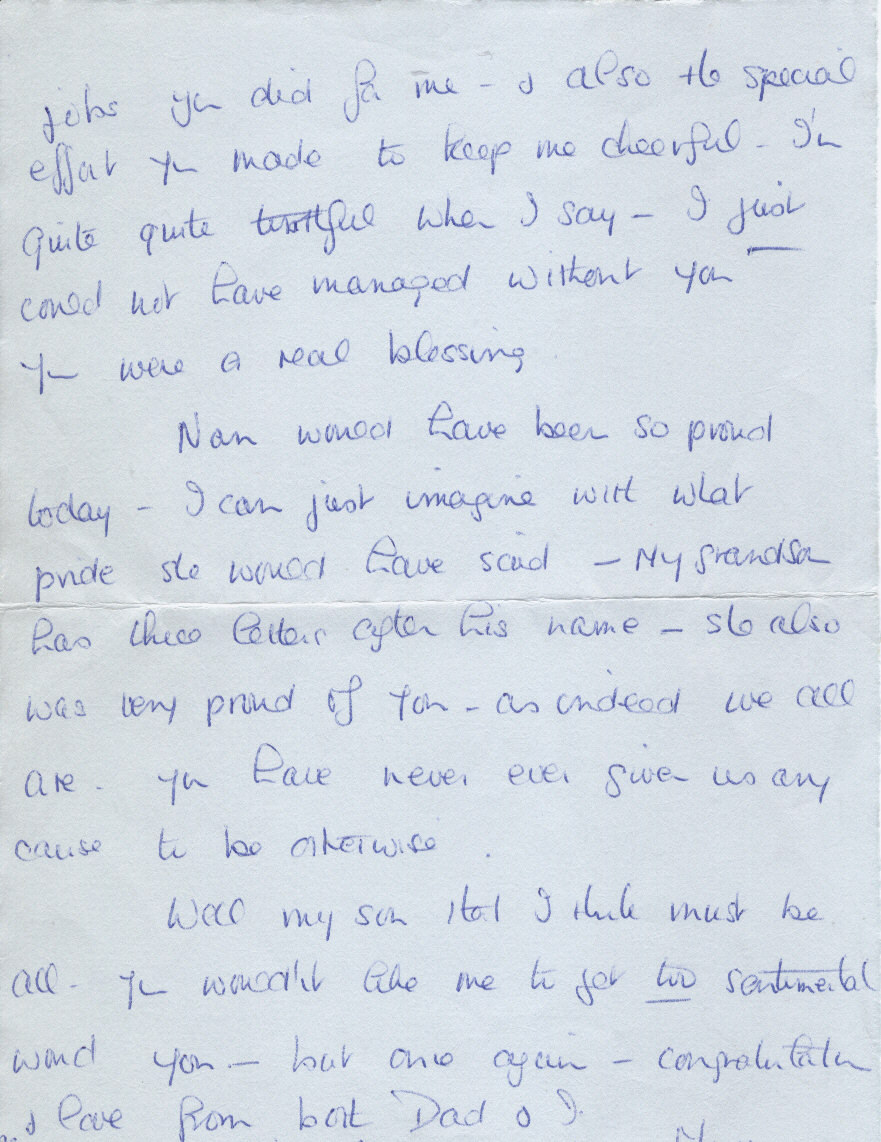 jobs you did for me - & also the special
effort you made to keep me cheerful - I'm
quite quite truthful when I say - I just
could not have managed without you
You were a real blessing
Nan would have been so proud
today - I can just imagine with what
pride she would have said - My grandson
has three letters after his name - she also
was very proud of you - as indeed we all
are. You have never ever given us any
cause to be otherwise.
Well my son that I think must be
all - you wouldn't like me to get too sentimental
would you - but once again - congratulation
& love from both Dad & I.